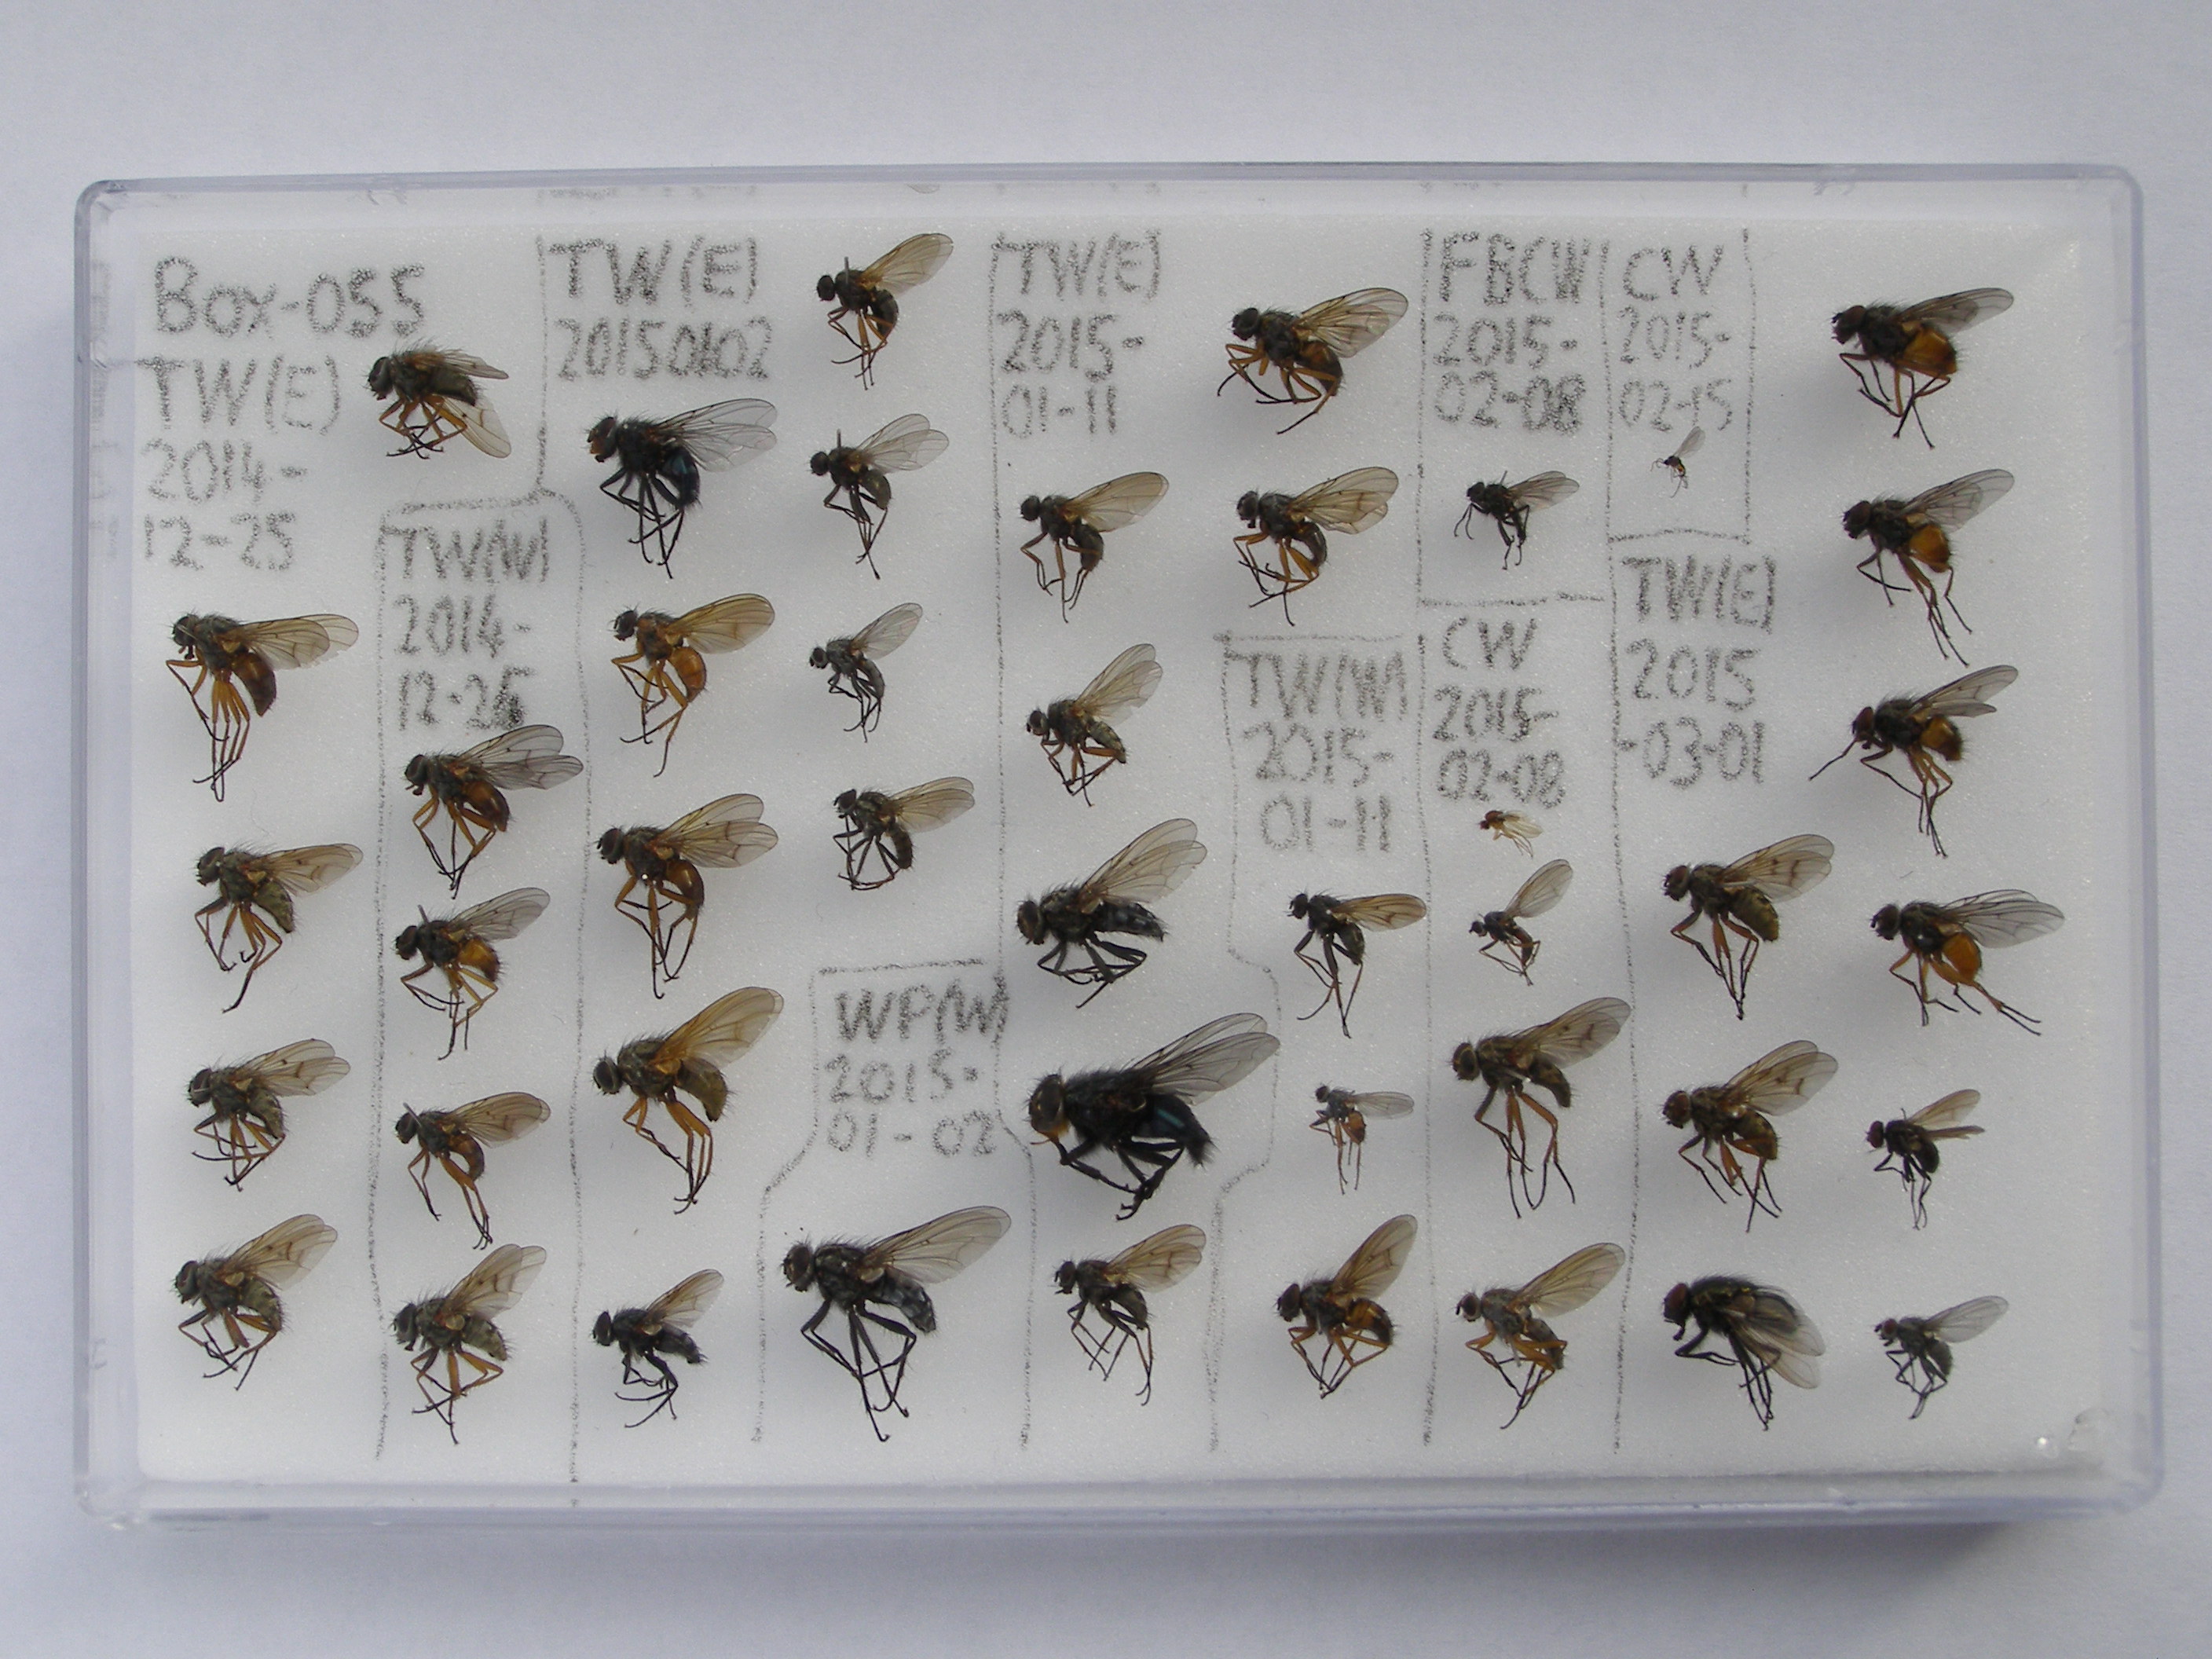 Box-055
TW(E)
2014-
12-25
TW(W)
2014-
12-25
TW(E)
20150102
WP(W)
2015-
01-02
TW(E)
2015-
01-11
TW(W)
2015-
01-11
FBCW
2015-
02-08
CW
2015-
02-08
CW
2015-
02-15
TW(E)
2015
-03-01